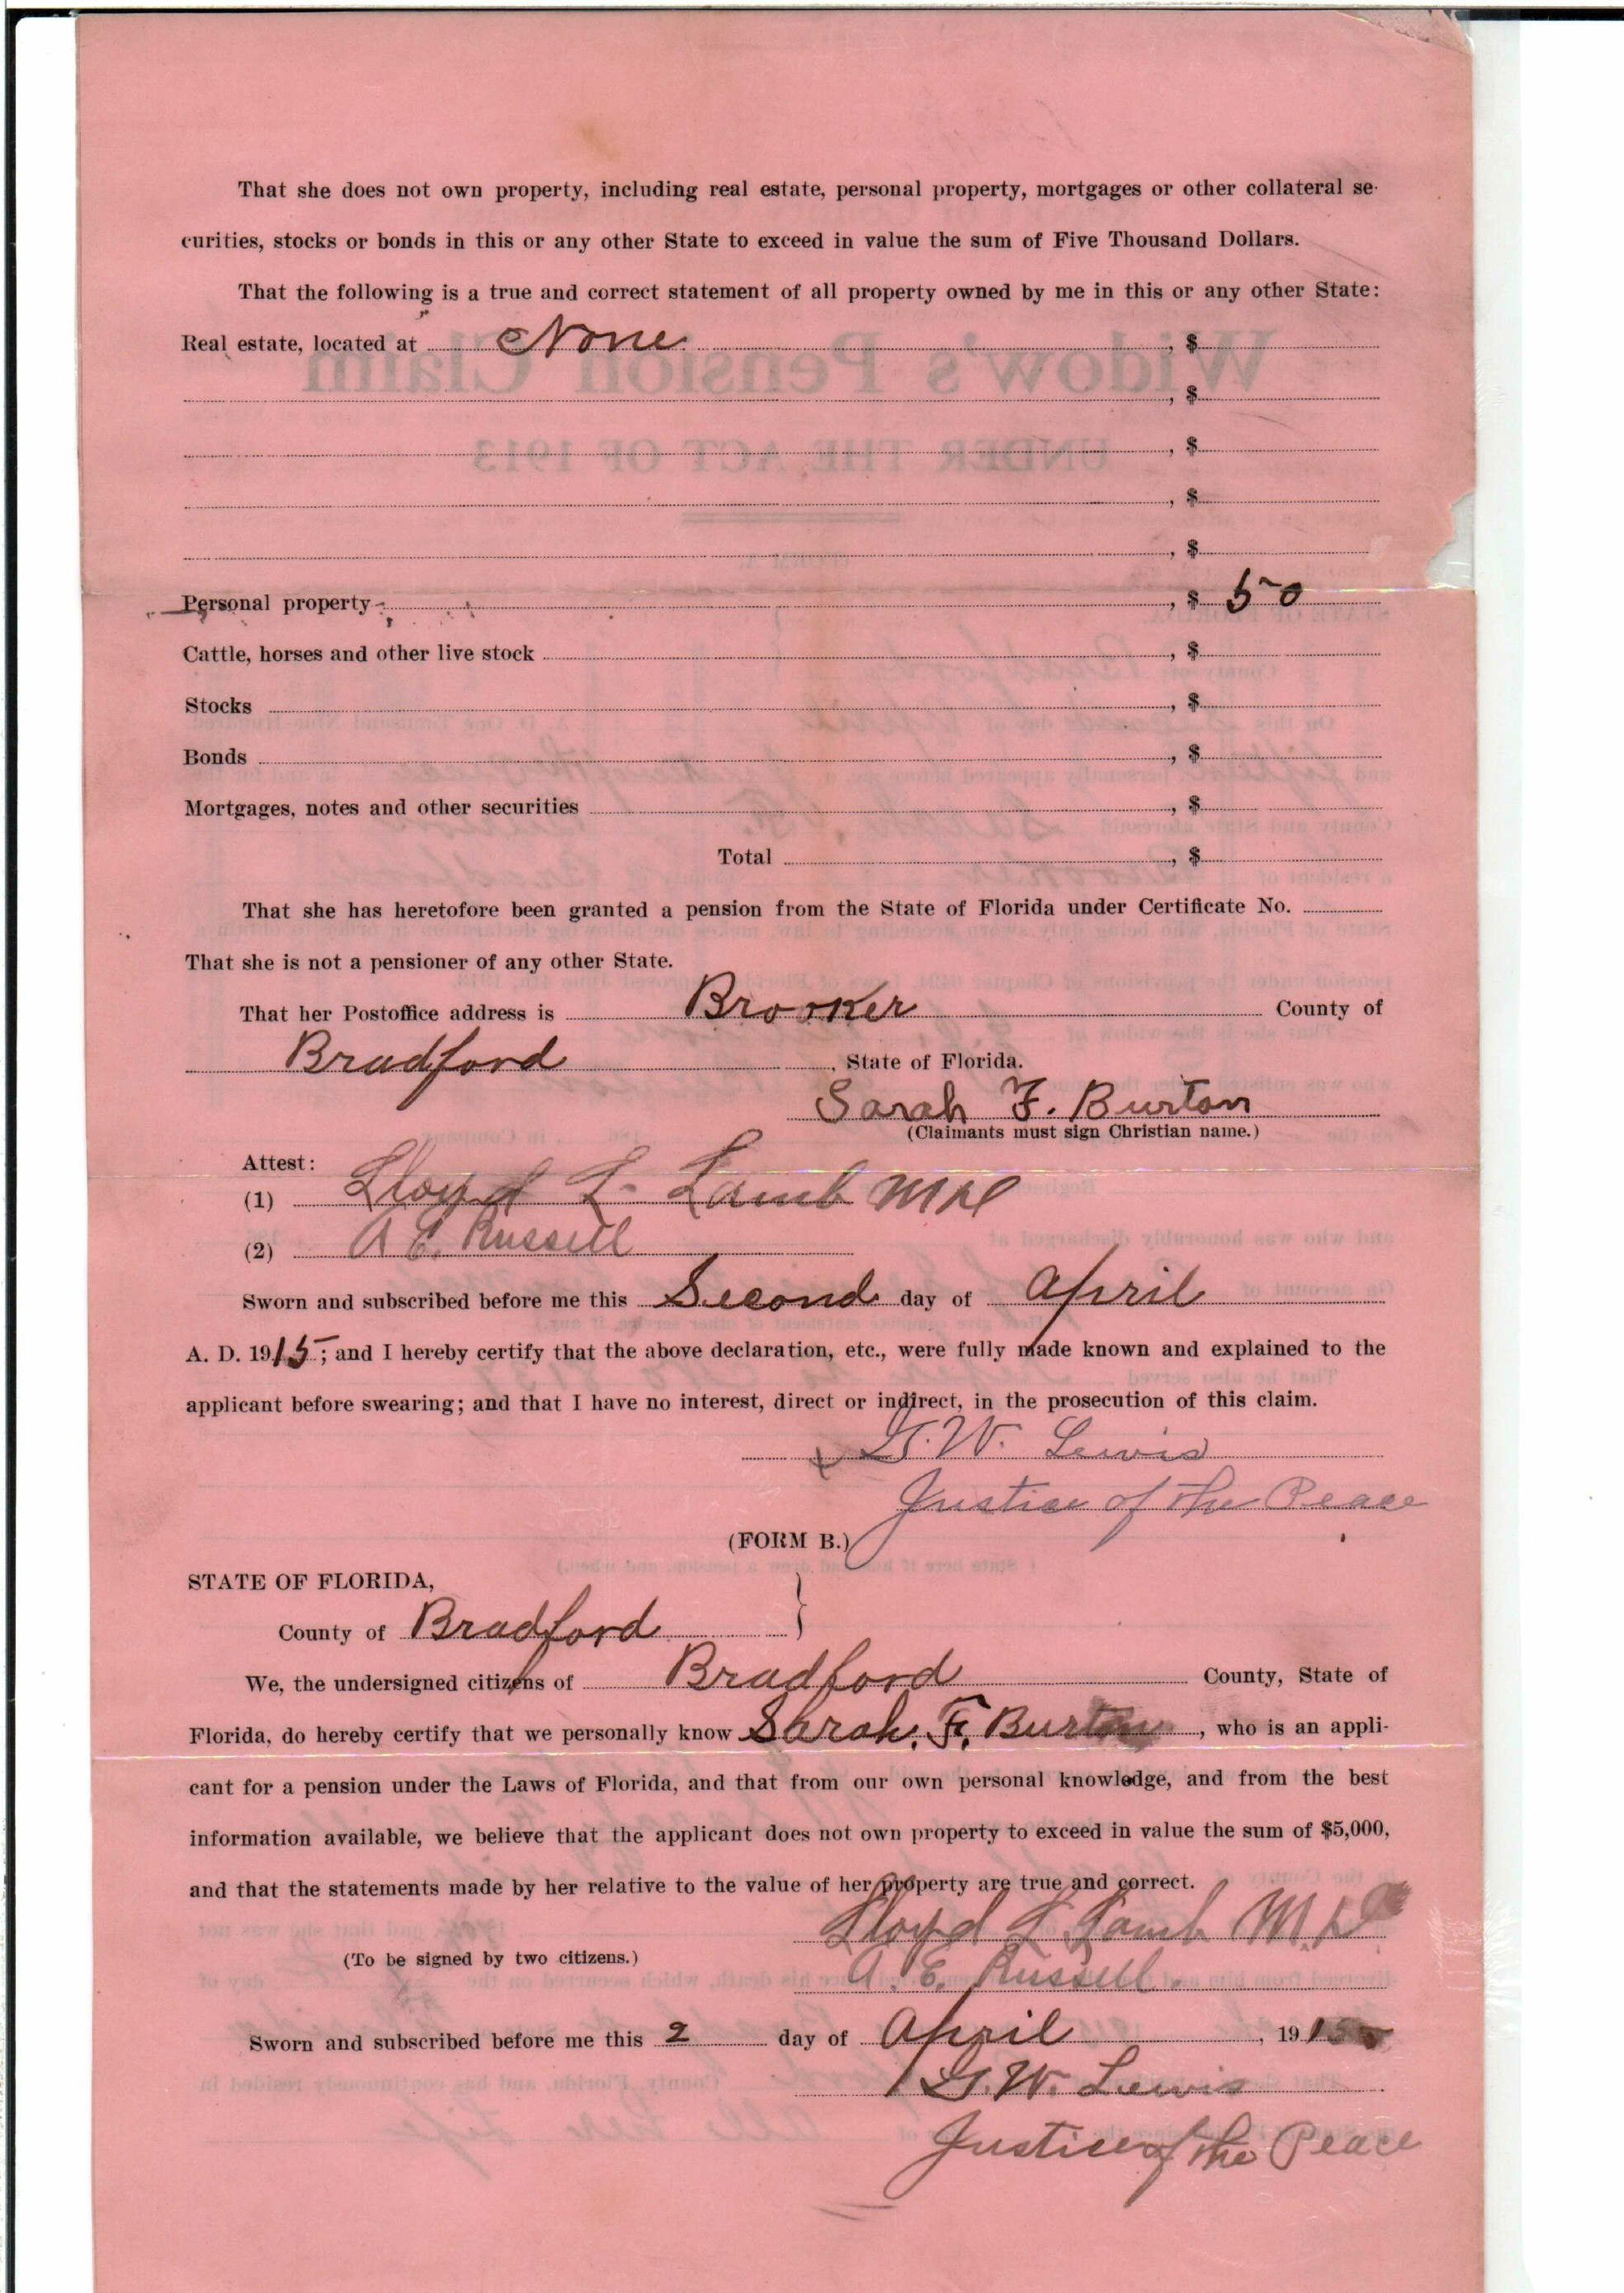 That she does not own property, including real estate, personal property, mortgages or other collateral se-
curities, stocks or bonds in this or any other State to exceed in value the sum of Five Thousand Dollars.
That the following is a true and correct statement of all property owned by me in this or any other State:
Real estate, located at None , $
, $
, $
, $
, $
Personal property , $ 50
Cattle, horses and other live stock , $
Stocks , $
Bonds , $
Mortgages, notes and other securities , $
Total , $
That she has heretofore been granted a pension from the State of Florida under Certificate No.
That she is not a pensioner of any other State.
That her Postoffice address is Brooker County of
Bradford , State of Florida.
Sarah F. Burton
(Claimants must sign Christian name.)
Attest:
(1) Lloyd L. Lamb MD
(2) A E. Russell
Sworn and subscribed before me this Second day of April
A. D. 1915; and I hereby certify that the above declaration, etc., were fully made known and explained to the
applicant before swearing; and that I have no interest, direct or indirect, in the prosecution of this claim.
W. Lewis
Justice of the Peace
(FORM B.)
STATE OF FLORIDA,
County of Bradford }
We, the undersigned citizens of Bradford County, State of
Florida, do hereby certify that we personally know Sarah. F. Burton , who is an appli-
cant for a pension under the Laws of Florida, and that from our own personal knowledge, and from the best
information available, we believe that the applicant does not own property to exceed in value the sum of $5,000,
and that the statements made by her relative to the value of her property are true and correct.
Lloyd L Lamb M.D
(To be signed by two citizens.)
A. E. Russell.
Sworn and subscribed before me this 2 day of April , 1915
W. Lewis
Justice of the Peace
Widow's Pension Claim
UNDER THE ACT OF 1913